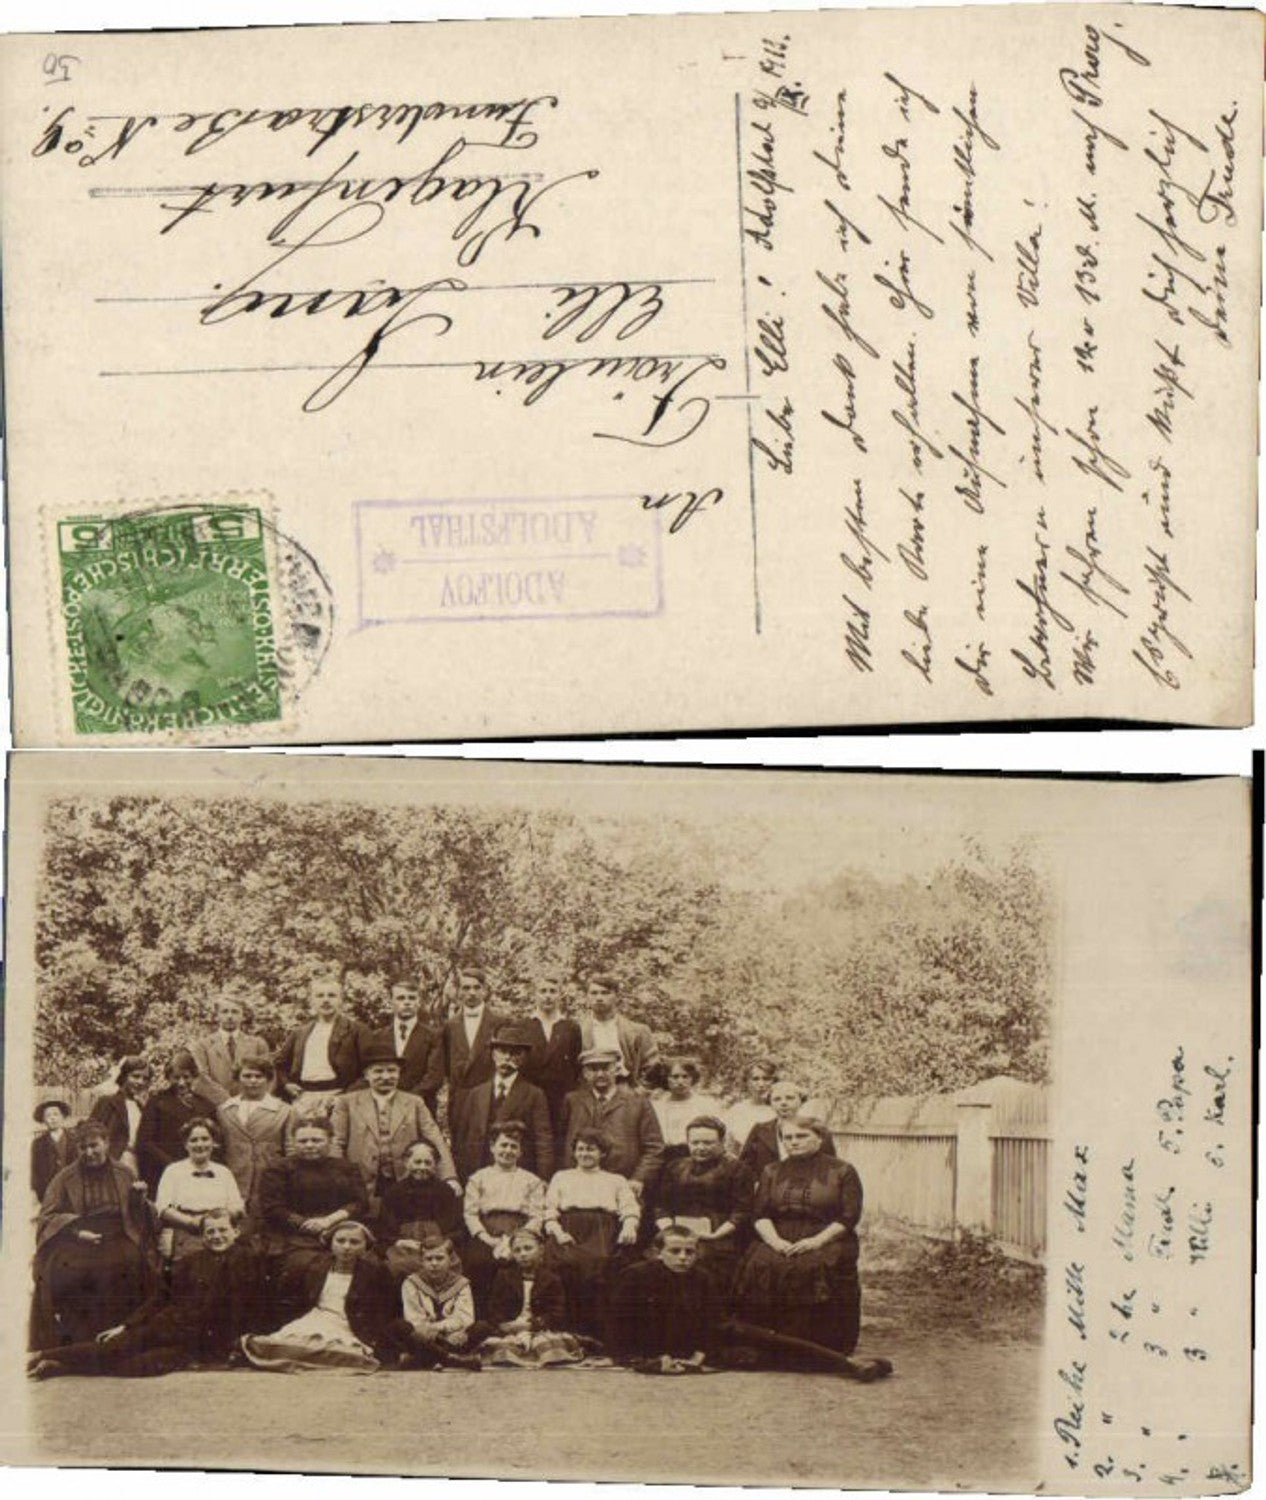 50
An
Fräulein
Elli Lang.
Klagenfurt
Funderstraße No 9.
ADOLFOV
ADOLFSTHAL
5 5
KAISERLICHE KÖNIGLICHE ÖSTERREICHISCHE POST
Liebe Elli! Adolfsthal 9/IX. 1913.
Mit besten Dank habe ich Deine
liebe Karte erhalten. Hier sende ich
Dir eine Aufnahme von sämtlichen
Bewohnern unserer Villa!
Wir fahren schon 13. d. M. nach Prag.
Es grüßt und küßt Dich herzlich
Deine Trude.
1. Reihe Mitte Max
2. " " he Mama
3. " 3 " Trud. 5. Papa
4. " 3 " Willi 5. Karl.